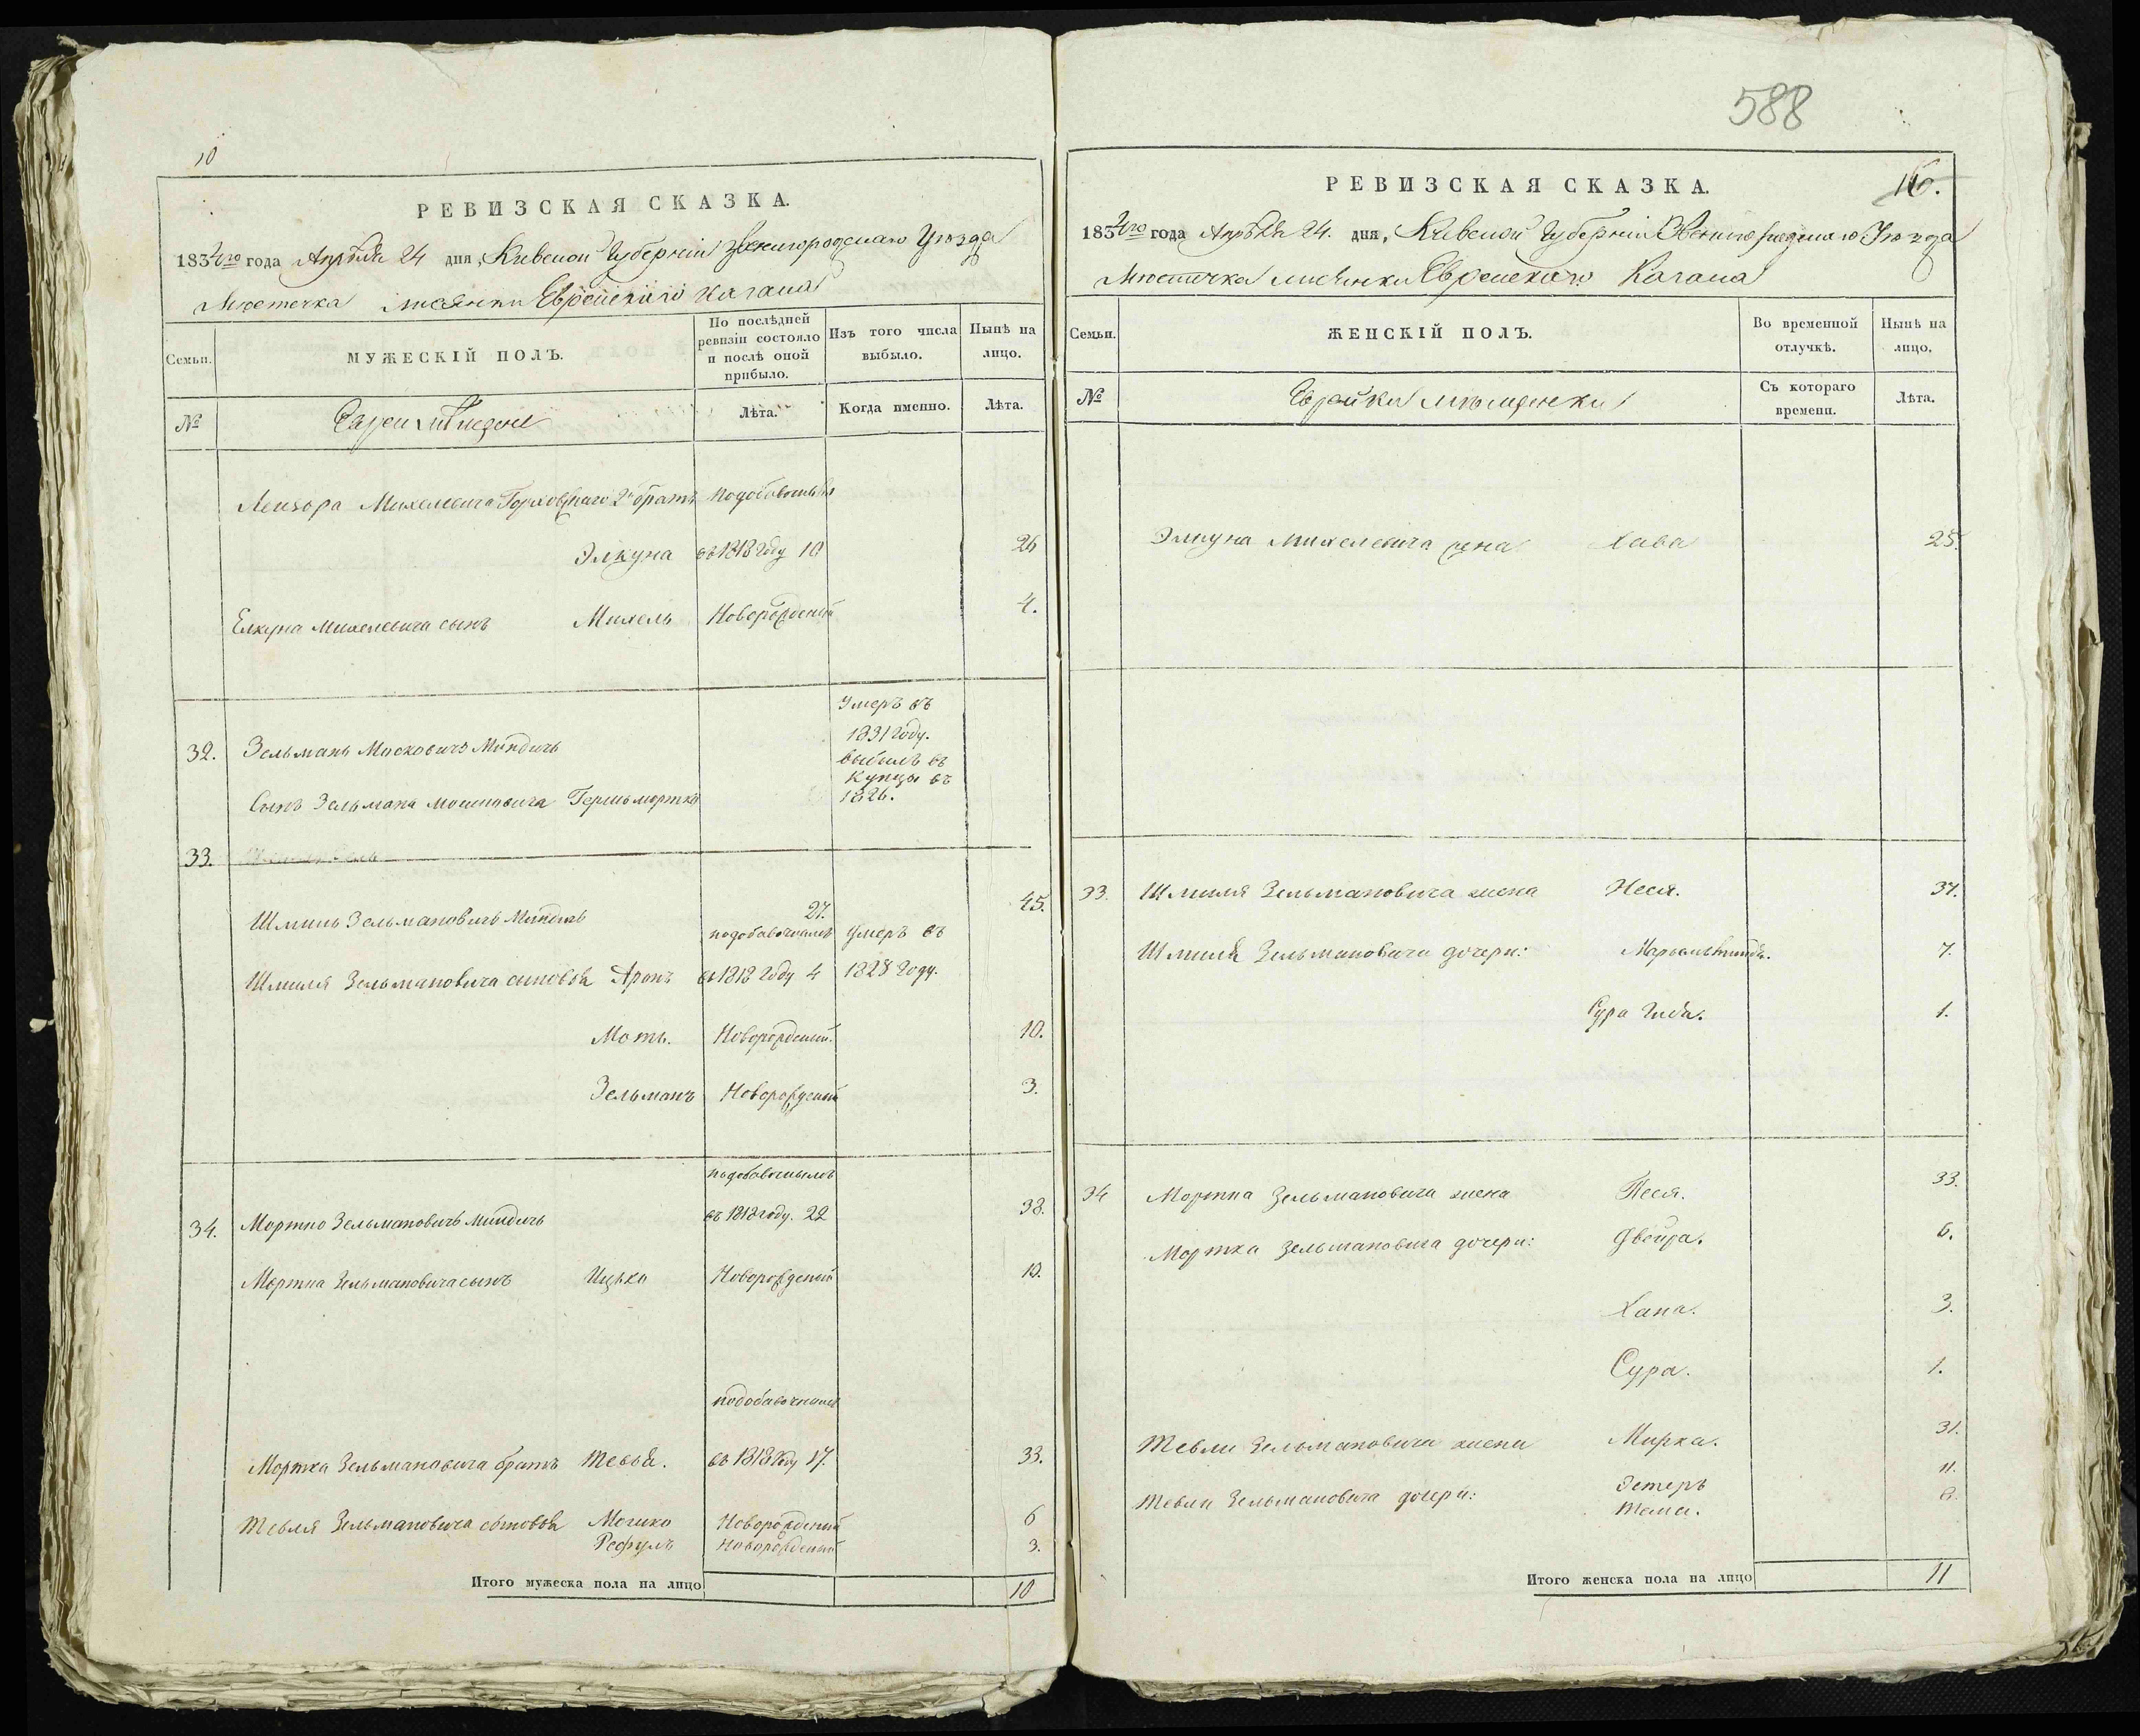 10
РЕВИЗСКАЯ СКАЗКА.
1834го года Апрѣля 24 дня, Киевской Губерніи Звенигородскаго Уѣзда
Мѣстечка Лисянки Еврейскаго Кагала
Семьи.
МУЖЕСКІЙ ПОЛЪ.
По послѣдней ревизіи состояло и послѣ оной прибыло.
Изъ того числа выбыло.
Нынѣ на лицо.
№
Евреи
Лѣта.
Когда именно.
Лѣта.
Лейзора Михелевича 2й братъ
Элкуна въ 1818 году 10 26
Елкуна Михелевича сынъ Михель Новорожденый 4.
Умеръ въ
1831 году.
32. Зельманъ Мошковичъ Миндичъ
выбылъ въ
купцы въ
Сынъ Зельмана Мошковича Гершъ мортко 1826.
33.
Шмиль Зельмановичъ Миндичъ 27. 45.
подобавочнымъ Умеръ въ
Шмиля Зельмановича сыновья Аронъ въ 1818 году 4 1828 году.
Моть. Новорожденый. 10.
Зельманъ Новорожденый 3.
34. Мортко Зельмановичъ Миндичъ въ 1818 году. 22 38.
Мортка Зельмановича сынъ Ицько Новорожденый 13.
Мортка Зельмановича братъ Тевья. въ 1818 году 17. 33.
Тевля Зельмановича сыновья Мошко Новорожденый 6
Рефулъ Новорожденый 3.
Итого мужеска пола на лицо 10
588
РЕВИЗСКАЯ СКАЗКА.
1834го года Апрѣля 24. дня, Киевской Губерніи Звенигородскаго Уѣзда
Мѣстечка Лисянки Еврейскаго Кагала
Семьи.
ЖЕНСКІЙ ПОЛЪ.
Во временной отлучкѣ.
Нынѣ на лицо.
№
Еврейки мѣщанки
Съ котораго времени.
Лѣта.
Элкуна Михелевича жена Хава 25.
33. Шмиля Зельмановича жена Неся. 37.
Шмиля Зельмановича дочери: 7.
Сура 1.
34 Мортка Зельмановича жена Песя. 33.
Мортка Зельмановича дочери: Двойра. 6.
Хана. 3.
Сура. 1.
Тевли Зельмановича жена Мирка. 31.
Тевли Зельмановича дочери: Эстеръ 11.
Итого женска пола на лицо 11